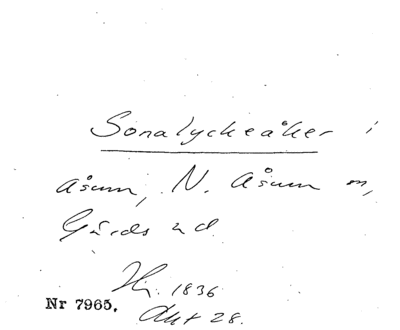 Sonalyckeåker i
Åsum, N. Åsum sn,
Gärds hd.
Hj. 1836
Nr 7965.
Akt 28.